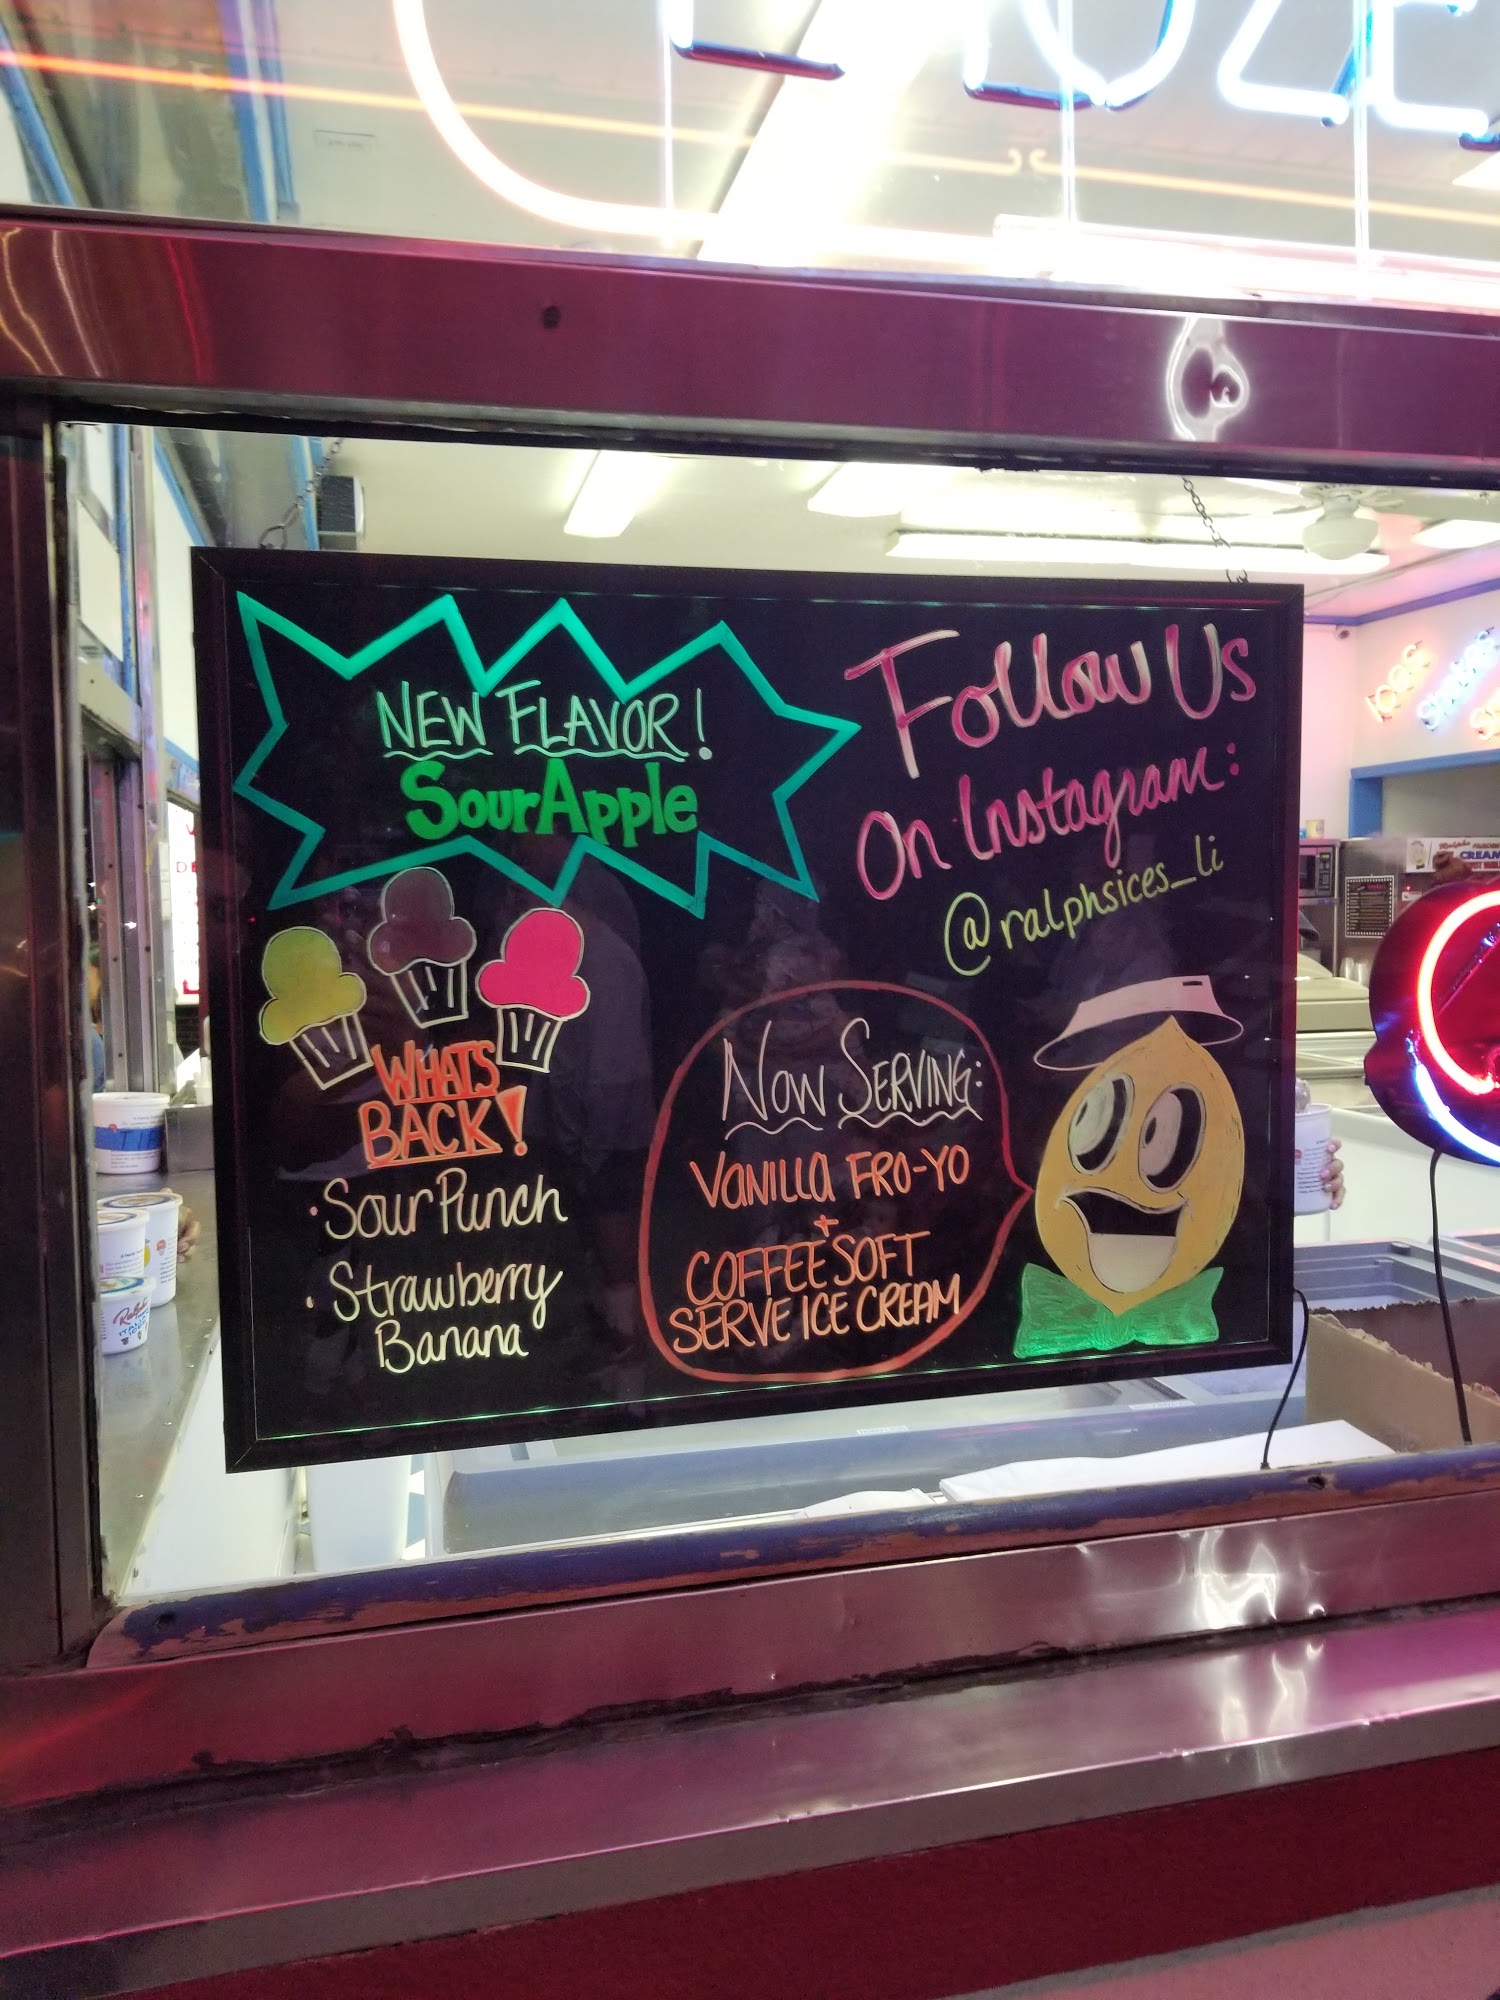 NEW FLAVOR!
Sour Apple
Follow Us
On Instagram:
@ralphsices_li
WHATS
BACK!
• Sour Punch
• Strawberry
Banana
Now Serving:
VANILLA FRO-YO
+
COFFEE SOFT
SERVE ICE CREAM
Ralph's
CREAM